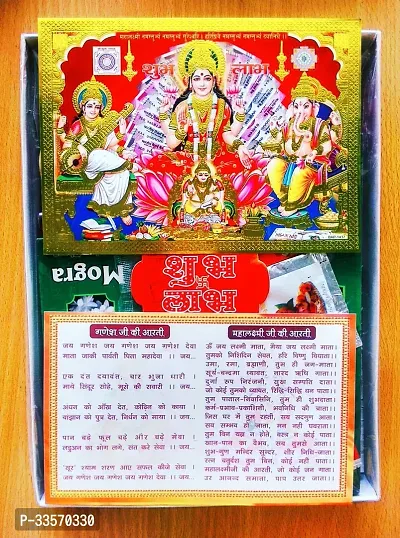 महालक्ष्मी नमस्तुभ्यं नमस्तुभ्यं सुरेश्वरि। हरिप्रिये नमस्तुभ्यं नमस्तुभ्यं दयानिधे।।
शुभ लाभ
Mogra
शुभ
लाभ
गणेश जी की आरती
जय गणेश जय गणेश जय गणेश देवा
माता जाकी पार्वती पिता महादेवा ।। जय...
एक दंत दयावंत, चार भुजा धारी ।
माथे सिंदूर सोहे, मूसे की सवारी ।। जय...
अंधन को आँख देत, कोढ़िन को काया ।
बाझन को पुत्र देत, निर्धन को माया ।। जय...
पान चढ़े फूल चढ़े और चढ़े मेवा ।
लड्डुअन का भोग लगे, संत करे सेवा ।। जय...
'सूर' श्याम शरण आए सफल कीजे सेवा ।
जय गणेश जय गणेश जय गणेश देवा ।। जय...
महालक्ष्मी जी की आरती
ॐ जय लक्ष्मी माता, मैया जय लक्ष्मी माता।
तुमको निशिदिन सेवत, हरि विष्णु विधाता।।
उमा, रमा, ब्रह्माणी, तुम ही जग-माता।
सूर्य-चन्द्रमा ध्यावत, नारद ऋषि गाता।।
दुर्गा रूप निरंजनी, सुख सम्पति दाता।
जो कोई तुमको ध्यावत, रिद्धि-सिद्धि धन पाता।।
तुम पाताल-निवासिनि, तुम ही शुभदाता।
कर्म-प्रभाव-प्रकाशिनी, भवनिधि की त्राता।।
जिस घर में तुम रहती, सब सद्गुण आता।
सब सम्भव हो जाता, मन नहीं घबराता।।
तुम बिन यज्ञ न होते, वस्त्र न कोई पाता।
खान-पान का वैभव, सब तुमसे आता।।
शुभ-गुण मन्दिर सुन्दर, क्षीर निधि-जाता।
रत्न चतुर्दश तुम बिन, कोई नहीं पाता।।
महालक्ष्मीजी की आरती, जो कोई जन गाता।
उर आनन्द समाता, पाप उतर जाता।।
P-33570330